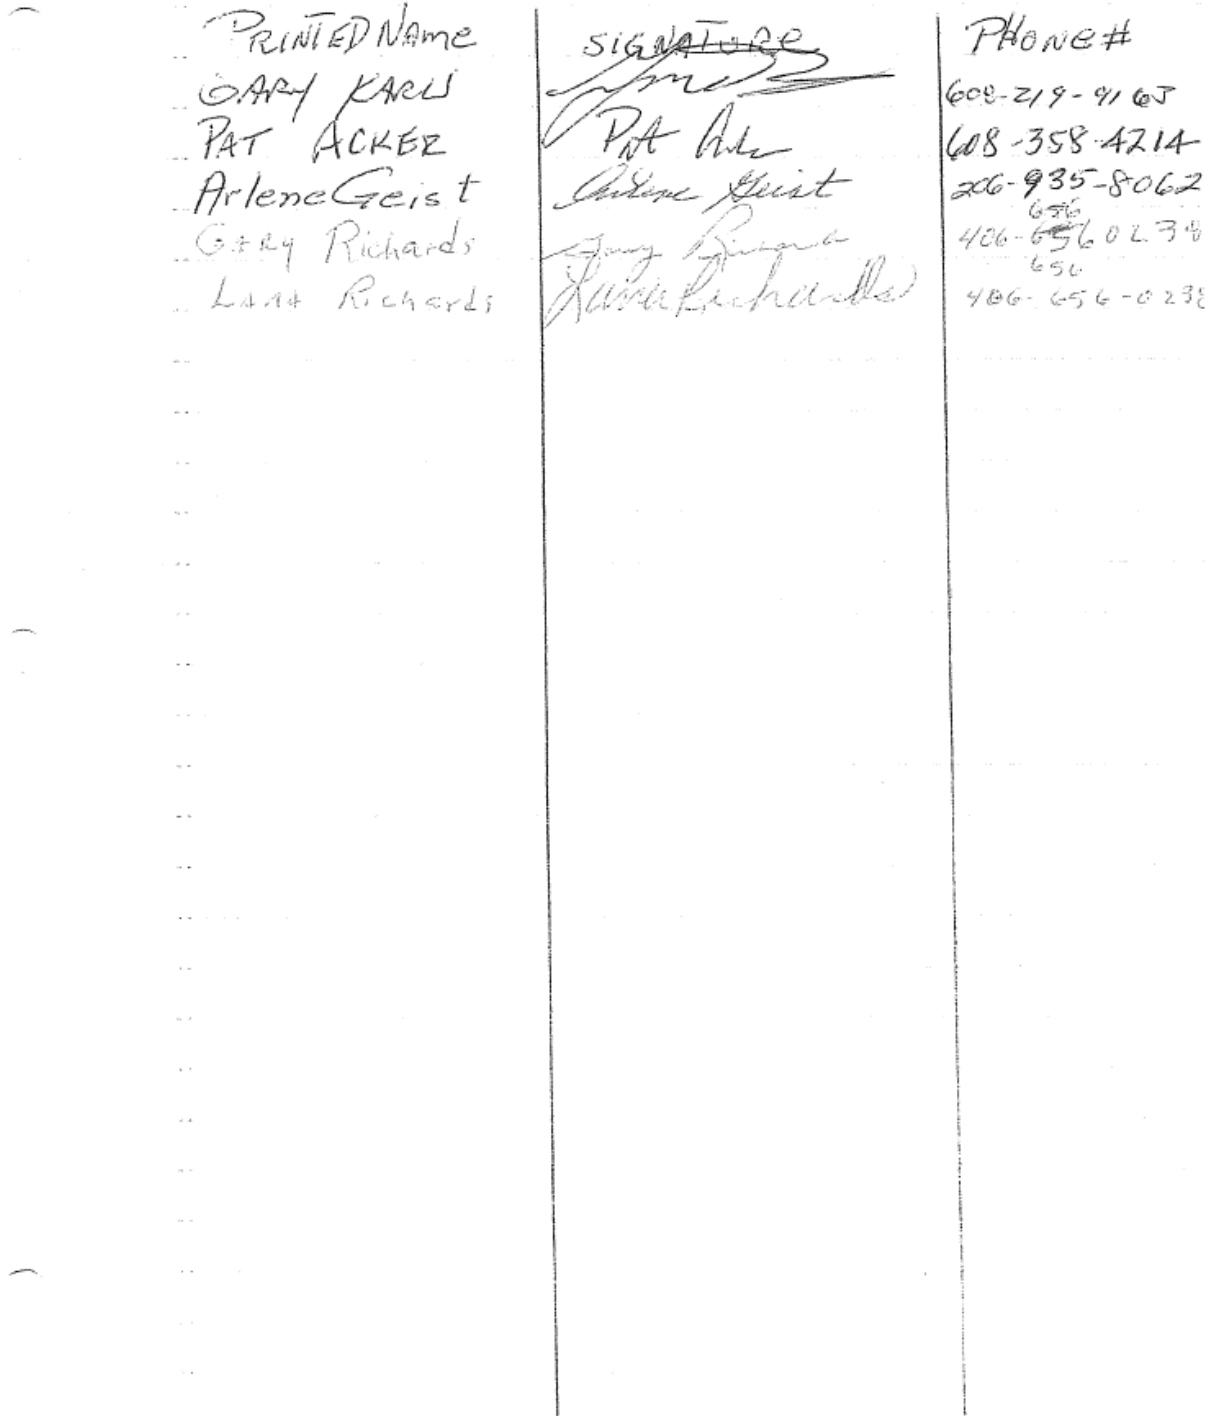 PRINTED NAME SIGNATURE PHONE #
GARY KARLS 608-219-9163
PAT ACKER Pat 608-358-4214
Arlene Geist Arlene Geist 206-935-8062
656
GARY Richards Gary 406-656 0238
656
LANA Richards Lana Richards 406-656-0238